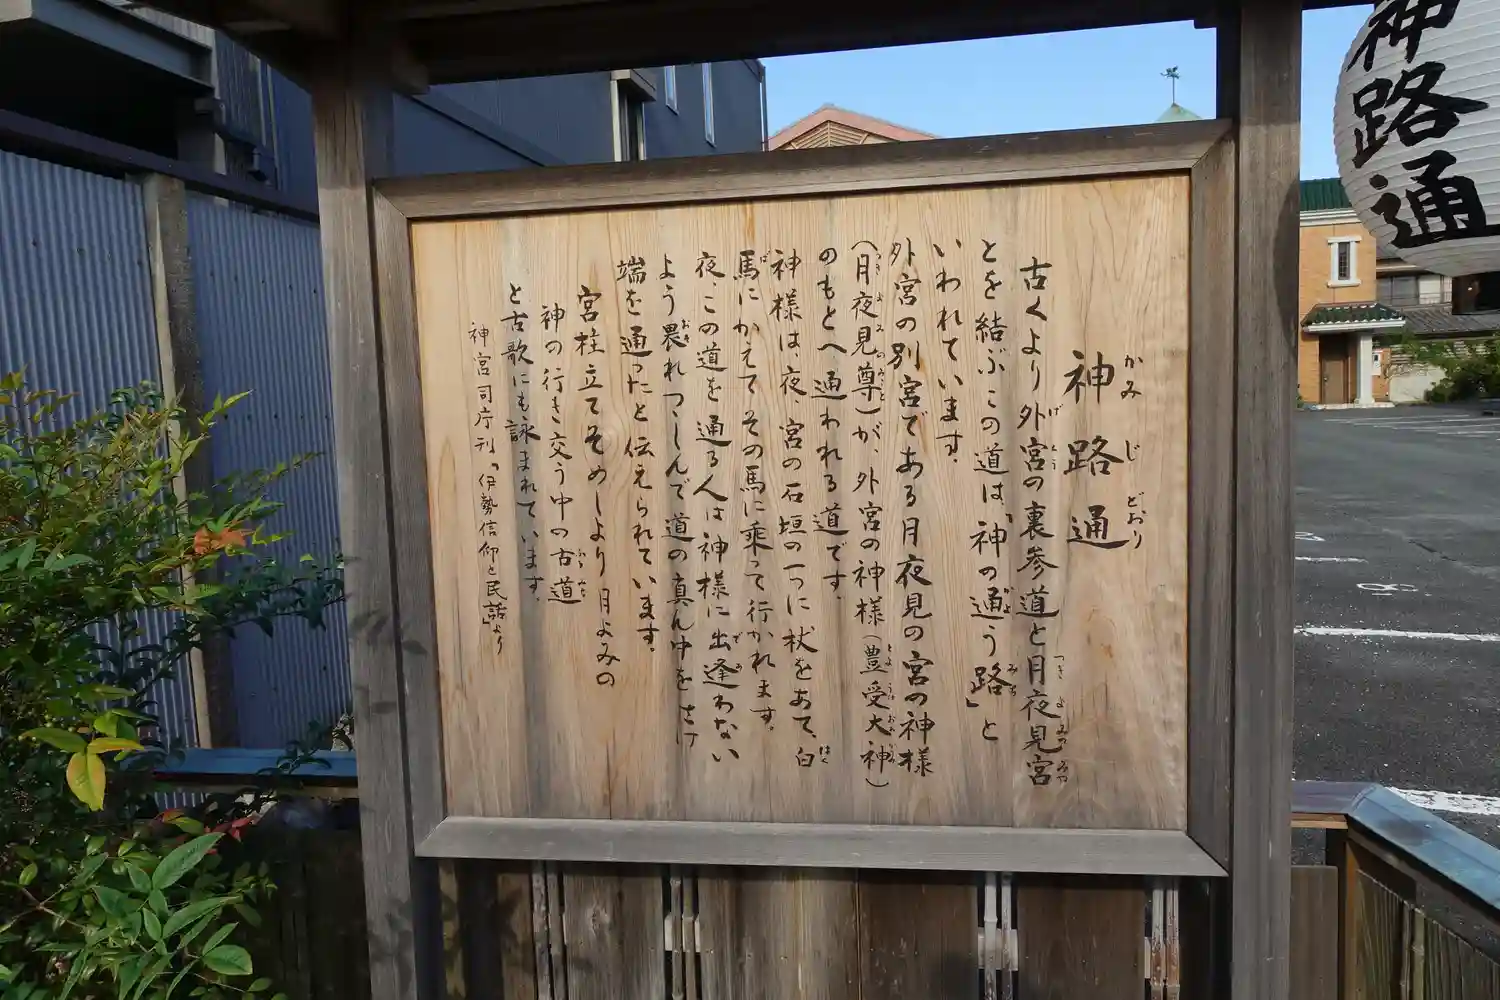 神路通
かみじどおり
古くより外宮の裏参道と月夜見宮
とを結ぶこの道は、「神の通う路」と
いわれています。
外宮の別宮である月夜見の宮の神様
(月夜見尊)が、外宮の神様(豊受大神)
のもとへ通われる道です。
神様は、夜、宮の石垣の一つに杖をあて、白
馬にかえてその馬に乗って行かれます。
夜、この道を通る人は神様に出逢わない
よう畏れつつしんで道の真ん中をさけ
端を通ったと伝えられています。
宮柱立てそめしより月よみの
神の行き交う中の古道
と古歌にも詠まれています。
神宮司庁刊「伊勢信仰と民話」より
神路通